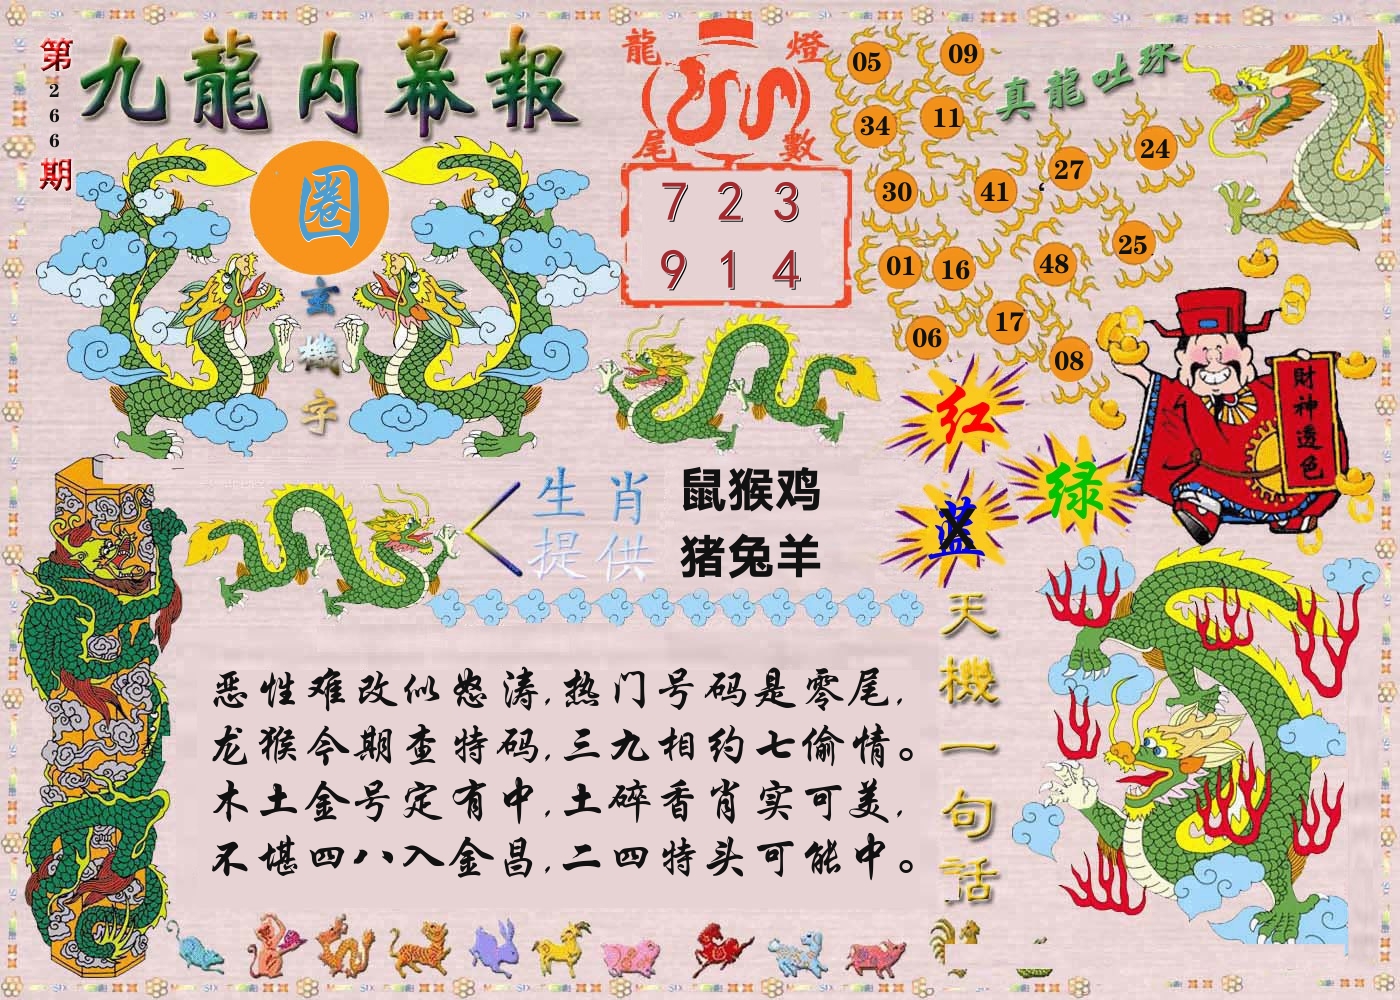 第266期
九龍内幕報
圈
玄機字
龍燈
尾數
7 2 3
9 1 4
真龍吐珠
05 09
34 11
27 24
30 41
01 16 48 25
06 17 08
財神透色
红
绿
蓝
生肖
提供
鼠猴鸡
猪兔羊
恶性难改似怒涛,热门号码是零尾,
龙猴今期查特码,三九相约七偷情。
木土金号定有中,土碎香肖实可美,
不堪四八入金昌,二四特头可能中。
天機一句話